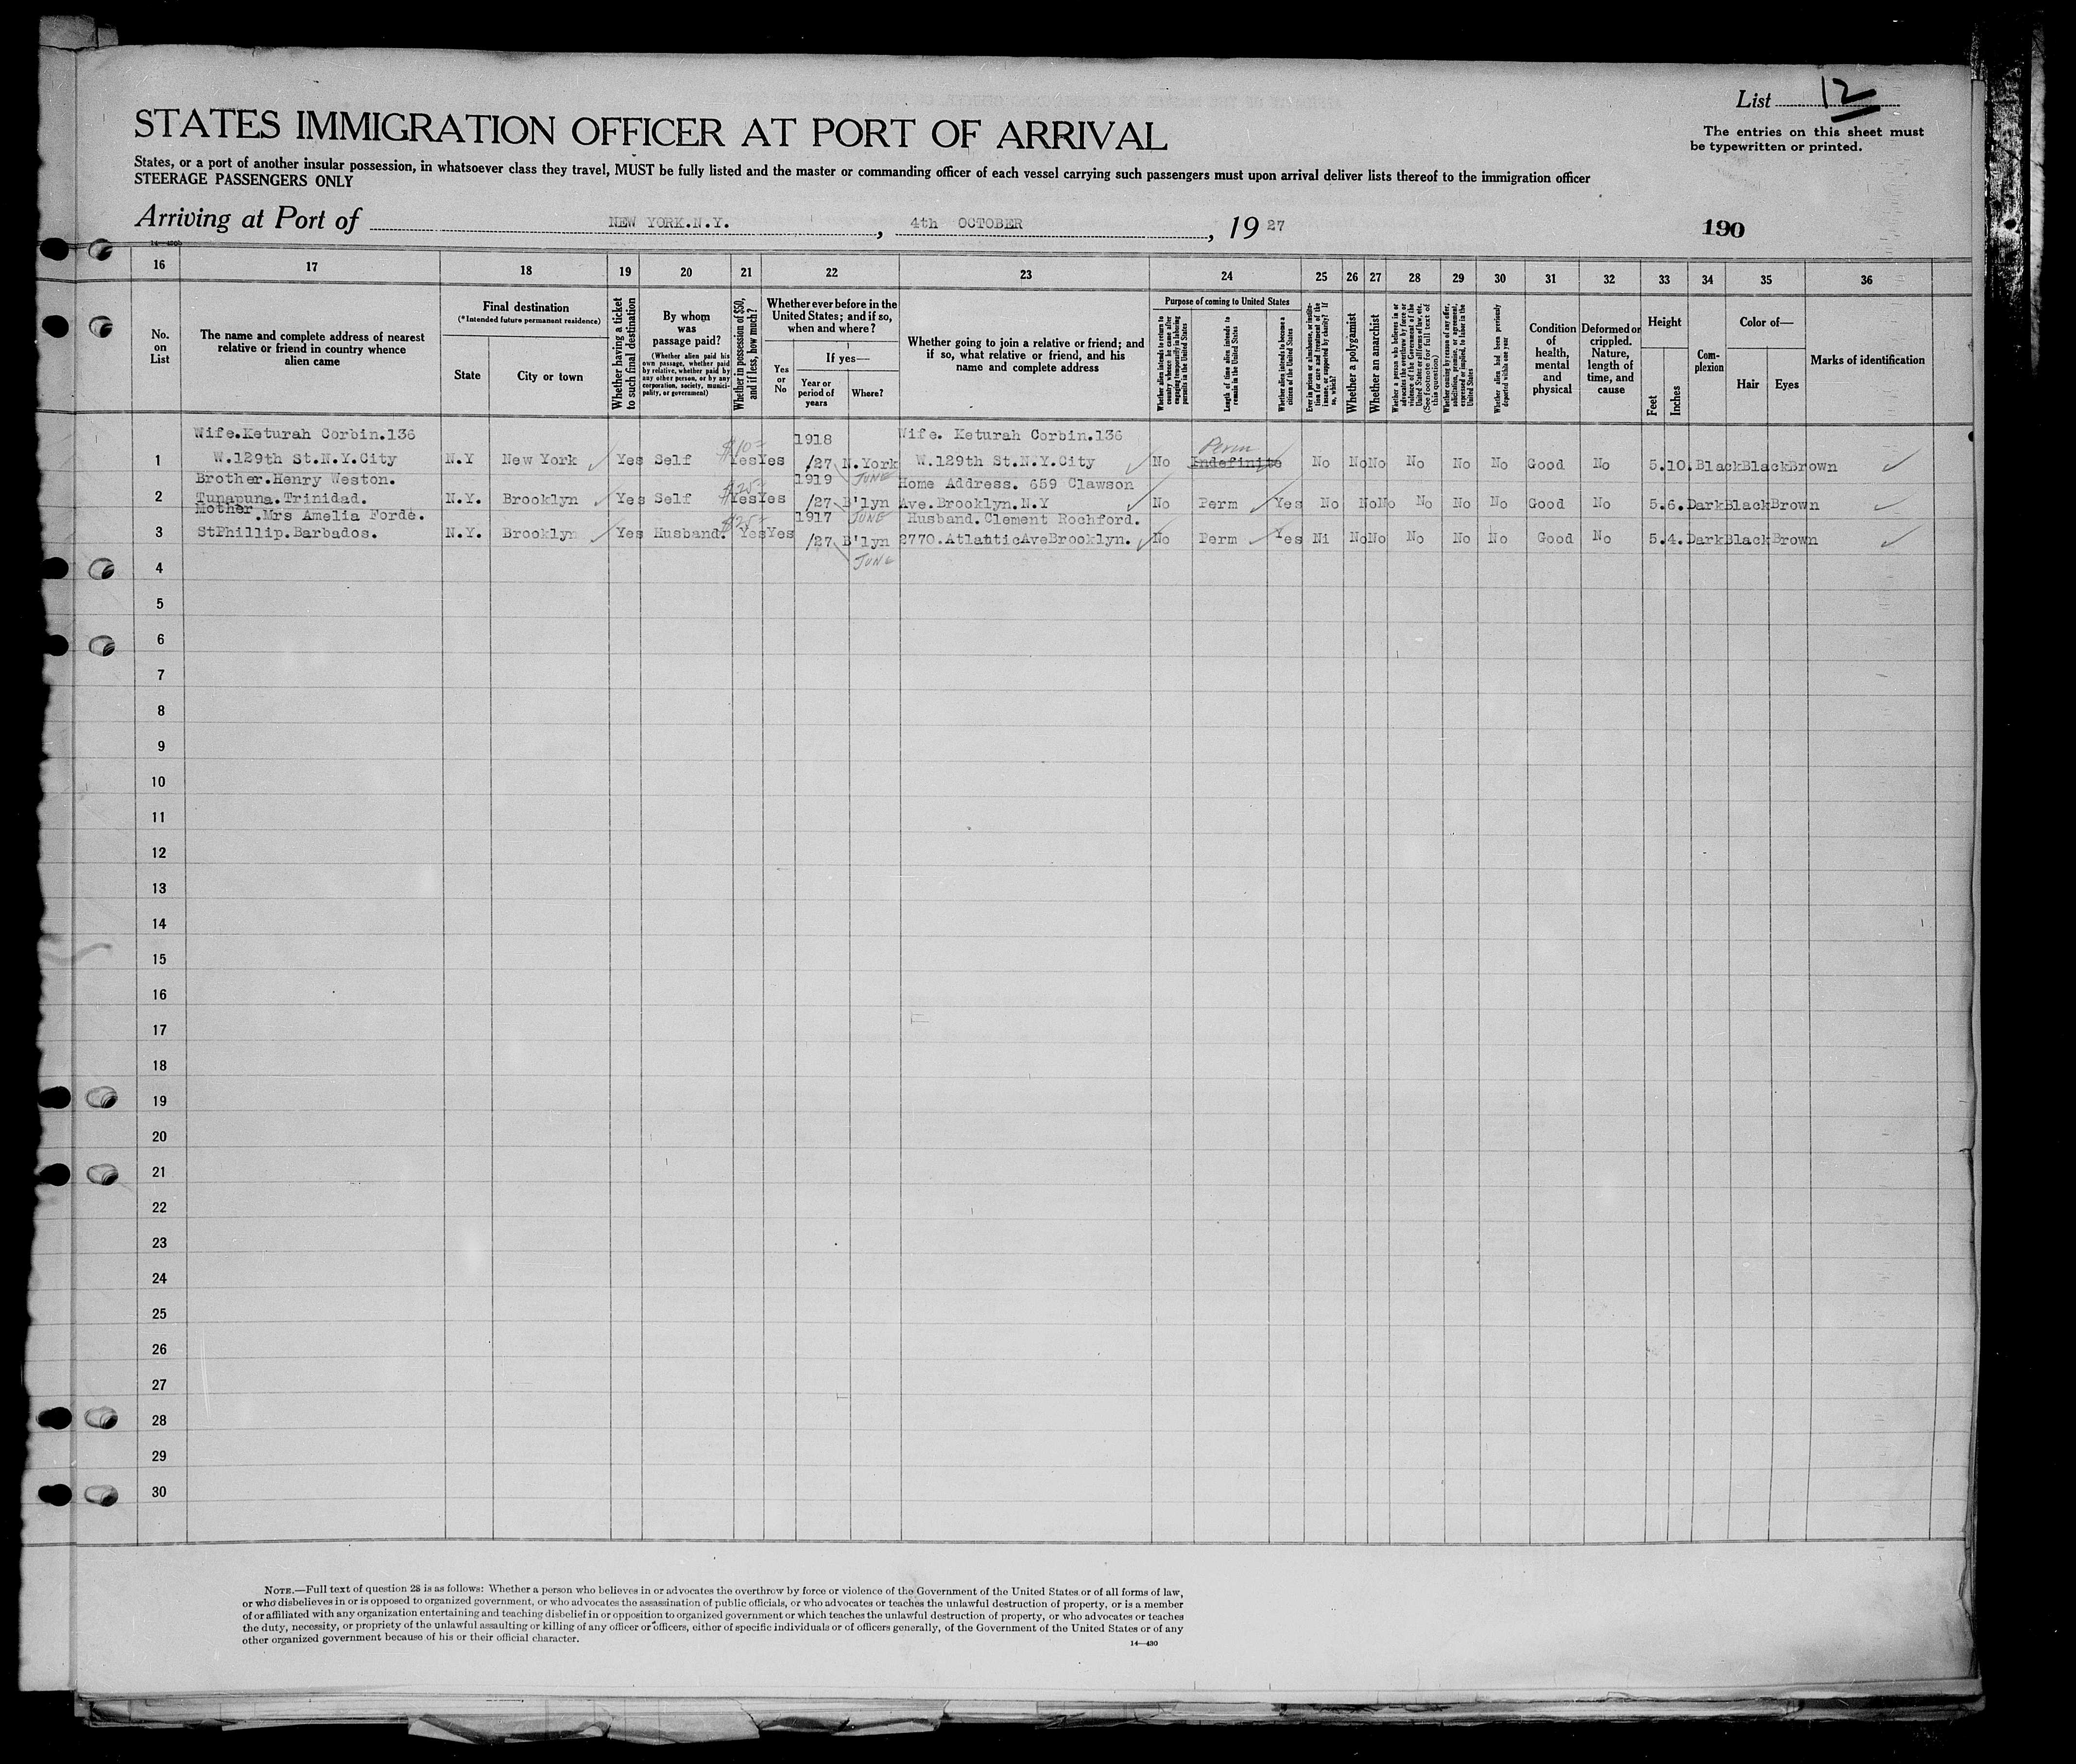 List 12
STATES IMMIGRATION OFFICER AT PORT OF ARRIVAL
The entries on this sheet must
be typewritten or printed.
States, or a port of another insular possession, in whatsoever class they travel, MUST be fully listed and the master or commanding officer of each vessel carrying such passengers must upon arrival deliver lists thereof to the immigration officer
STEERAGE PASSENGERS ONLY
Arriving at Port of NEW YORK.N.Y. , 4th OCTOBER , 19 27
190
14—430b
16 17 18 19 20 21 22 23 24 25 26 27 28 29 30 31 32 33 34 35 36
No. on List
The name and complete address of nearest relative or friend in country whence alien came
Final destination
(*Intended future permanent residence)
State
City or town
Whether having a ticket to such final destination
By whom was passage paid?
(Whether alien paid his own passage, whether paid by relative, whether paid by any other person, or by any corporation, society, municipality, or government)
Whether in possession of $50, and if less, how much?
Whether ever before in the United States; and if so, when and where?
Yes or No
If yes—
Year or period of years
Where?
Whether going to join a relative or friend; and if so, what relative or friend, and his name and complete address
Purpose of coming to United States
Whether alien intends to return to country whence he came after engaging temporarily in laboring pursuits in the United States
Length of time alien intends to remain in the United States
Whether alien intends to become a citizen of the United States
Ever in prison or almshouse, or institution for care and treatment of the insane, or supported by charity? If so, which?
Whether a polygamist
Whether an anarchist
Whether a person who believes in or advocates the overthrow by force or violence of the Government of the United States or all forms of law, etc. (See footnote for full text of this question)
Whether coming by reason of any offer, solicitation, promise, or agreement, expressed or implied, to labor in the United States
Whether alien had been previously deported within one year
Condition of health, mental and physical
Deformed or crippled. Nature, length of time, and cause
Height
Feet
Inches
Complexion
Color of—
Hair
Eyes
Marks of identification
Wife.Keturah Corbin.136 $10 1918 Wife. Keturah Corbin.136 Perm
1 W.129th St.N.Y.City N.Y New York Yes Self Yes Yes /27 N.York W.129th St.N.Y.City No Indefinite No No No No No No Good No 5.10.Black Black Brown
Brother.Henry Weston. $25 1919 JUNE Home Address. 659 Clawson
2 Tunapuna.Trinidad. N.Y. Brooklyn Yes Self Yes Yes /27 B'lyn Ave.Brooklyn.N.Y No Perm Yes No No No No No No Good No 5.6.Dark Black Brown
Mother.Mrs Amelia Forde. $25 1917 JUNE Husband.Clement Rochford.
3 StPhillip.Barbados. N.Y. Brooklyn Yes Husband. Yes Yes /27 B'lyn 2770.AtlanticAveBrooklyn. No Perm Yes Ni No No No No No Good No 5.4.Dark Black Brown
JUNE
4
5
6
7
8
9
10
11
12
13
14
15
16
17
18
19
20
21
22
23
24
25
26
27
28
29
30
NOTE.—Full text of question 28 is as follows: Whether a person who believes in or advocates the overthrow by force or violence of the Government of the United States or of all forms of law,
or who disbelieves in or is opposed to organized government, or who advocates the assassination of public officials, or who advocates or teaches the unlawful destruction of property, or is a member
of or affiliated with any organization entertaining and teaching disbelief in or opposition to organized government or which teaches the unlawful destruction of property, or who advocates or teaches
the duty, necessity, or propriety of the unlawful assaulting or killing of any officer or officers, either of specific individuals or of officers generally, of the Government of the United States or of any
other organized government because of his or their official character.
14—430